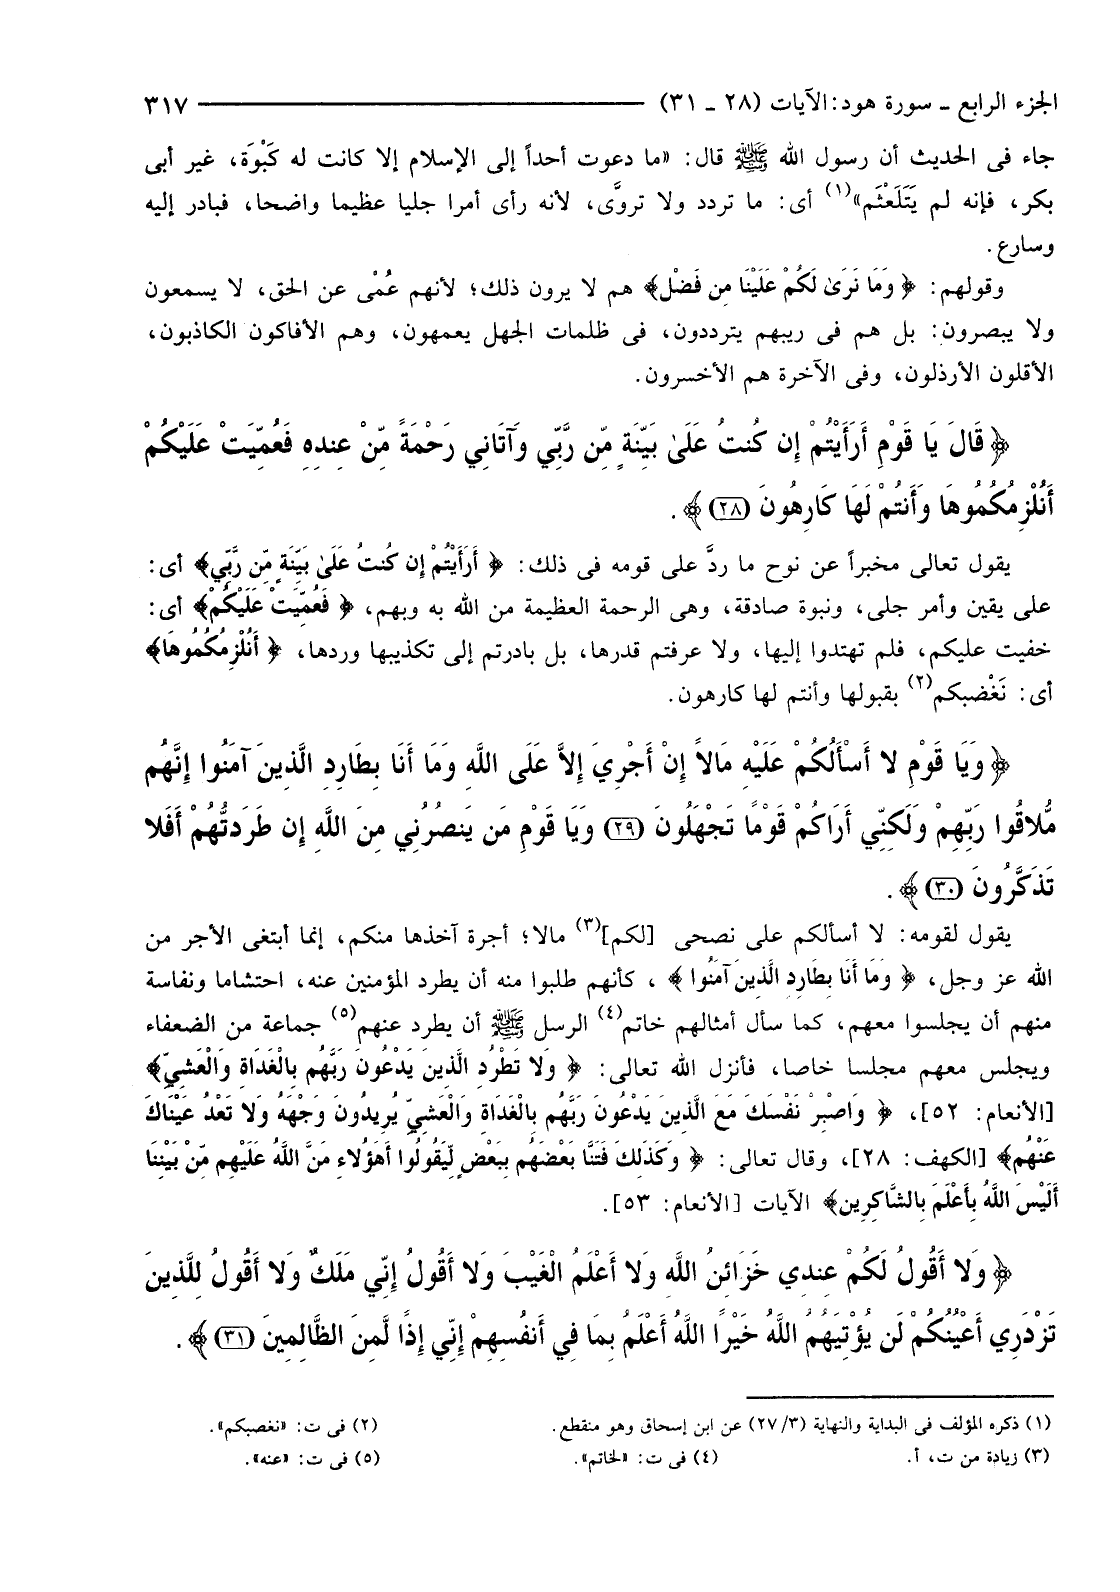 الجزء الرابع ـ سورة هود: الآيات (٢٨ ـ ٣١) ٣١٧
جاء فى الحديث أن رسول الله ﷺ قال: «ما دعوت أحداً إلى الإسلام إلا كانت له كَبْوَة، غير أبى
بكر، فإنه لم يَتَلَعْثَم»(١) أى: ما تردد ولا تروَّى، لأنه رأى أمرا جليا عظيما واضحا، فبادر إليه
وسارع.
وقولهم: ﴿ وَمَا نَرَىٰ لَكُمْ عَلَيْنَا مِن فَضْلٍ﴾ هم لا يرون ذلك؛ لأنهم عُمْى عن الحق، لا يسمعون
ولا يبصرون: بل هم فى ريبهم يترددون، فى ظلمات الجهل يعمهون، وهم الأفاكون الكاذبون،
الأقلون الأرذلون، وفى الآخرة هم الأخسرون.
﴿قَالَ يَا قَوْمِ أَرَأَيْتُمْ إِن كُنتُ عَلَىٰ بَيِّنَةٍ مِّن رَّبِّي وَآتَانِي رَحْمَةً مِّنْ عِندِهِ فَعُمِّيَتْ عَلَيْكُمْ
أَنُلْزِمُكُمُوهَا وَأَنتُمْ لَهَا كَارِهُونَ (٢٨)﴾.
يقول تعالى مخبراً عن نوح ما ردَّ على قومه فى ذلك: ﴿ أَرَأَيْتُمْ إِن كُنتُ عَلَىٰ بَيِّنَةٍ مِّن رَّبِّي﴾ أى:
على يقين وأمر جلى، ونبوة صادقة، وهى الرحمة العظيمة من الله به وبهم، ﴿ فَعُمِّيَتْ عَلَيْكُمْ﴾ أى:
خفيت عليكم، فلم تهتدوا إليها، ولا عرفتم قدرها، بل بادرتم إلى تكذيبها وردها، ﴿ أَنُلْزِمُكُمُوهَا﴾
أى: نَغْضبكم(٢) بقبولها وأنتم لها كارهون.
﴿وَيَا قَوْمِ لا أَسْأَلُكُمْ عَلَيْهِ مَالاً إِنْ أَجْرِيَ إِلاَّ عَلَى اللَّهِ وَمَا أَنَا بِطَارِدِ الَّذِينَ آمَنُوا إِنَّهُم
مُّلاقُوا رَبِّهِمْ وَلَكِنِّي أَرَاكُمْ قَوْمًا تَجْهَلُونَ (٢٩) وَيَا قَوْمِ مَن يَنصُرُنِي مِنَ اللَّهِ إِن طَرَدتُّهُمْ أَفَلا
تَذَكَّرُونَ (٣٠)﴾.
يقول لقومه: لا أسألكم على نصحى [لكم](٣) مالا؛ أجرة آخذها منكم، إنما أبتغى الأجر من
الله عز وجل، ﴿ وَمَا أَنَا بِطَارِدِ الَّذِينَ آمَنُوا ﴾ ، كأنهم طلبوا منه أن يطرد المؤمنين عنه، احتشاما ونفاسة
منهم أن يجلسوا معهم، كما سأل أمثالهم خاتم(٤) الرسل ﷺ أن يطرد عنهم(٥) جماعة من الضعفاء
ويجلس معهم مجلسا خاصا، فأنزل الله تعالى: ﴿ وَلا تَطْرُدِ الَّذِينَ يَدْعُونَ رَبَّهُم بِالْغَدَاةِ وَالْعَشِيِّ﴾
[الأنعام: ٥٢]، ﴿ وَاصْبِرْ نَفْسَكَ مَعَ الَّذِينَ يَدْعُونَ رَبَّهُم بِالْغَدَاةِ وَالْعَشِيِّ يُرِيدُونَ وَجْهَهُ وَلا تَعْدُ عَيْنَاكَ
عَنْهُم﴾ [الكهف: ٢٨]، وقال تعالى: ﴿ وَكَذَلِكَ فَتَنَّا بَعْضَهُم بِبَعْضٍ لِّيَقُولُوا أَهَؤُلاءِ مَنَّ اللَّهُ عَلَيْهِم مِّنْ بَيْنِنَا
أَلَيْسَ اللَّهُ بِأَعْلَمَ بِالشَّاكِرِين﴾ الآيات [الأنعام: ٥٣].
﴿وَلا أَقُولُ لَكُمْ عِندِي خَزَائِنُ اللَّهِ وَلا أَعْلَمُ الْغَيْبَ وَلا أَقُولُ إِنِّي مَلَكٌ وَلا أَقُولُ لِلَّذِينَ
تَزْدَرِي أَعْيُنُكُمْ لَن يُؤْتِيَهُمُ اللَّهُ خَيْرًا اللَّهُ أَعْلَمُ بِمَا فِي أَنفُسِهِمْ إِنِّي إِذًا لَّمِنَ الظَّالِمِينَ (٣١)﴾.
(١) ذكره المؤلف فى البداية والنهاية (٣/ ٢٧) عن ابن إسحاق وهو منقطع. (٢) فى ت: «نغصبكم».
(٣) زيادة من ت، أ. (٤) فى ت: «لخاتم». (٥) فى ت: «عنه».